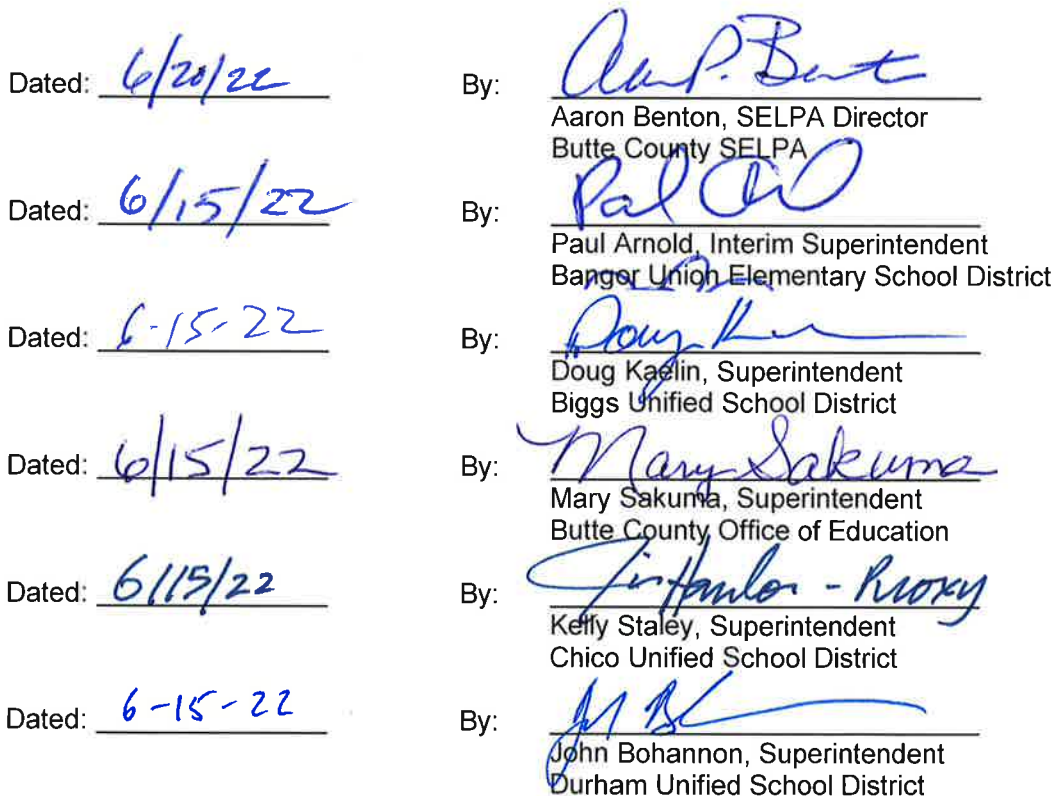 Dated: 6/20/22 By: Aaron P. Bent
Aaron Benton, SELPA Director
Butte County SELPA
Dated: 6/15/22 By: Paul
Paul Arnold, Interim Superintendent
Bangor Union Elementary School District
Dated: 6-15-22 By: Doug
Doug Kaelin, Superintendent
Biggs Unified School District
Dated: 6/15/22 By: Mary Sakuma
Mary Sakuma, Superintendent
Butte County Office of Education
Dated: 6/15/22 By: Jim Hanlon - Proxy
Kelly Staley, Superintendent
Chico Unified School District
Dated: 6-15-22 By:
John Bohannon, Superintendent
Durham Unified School District